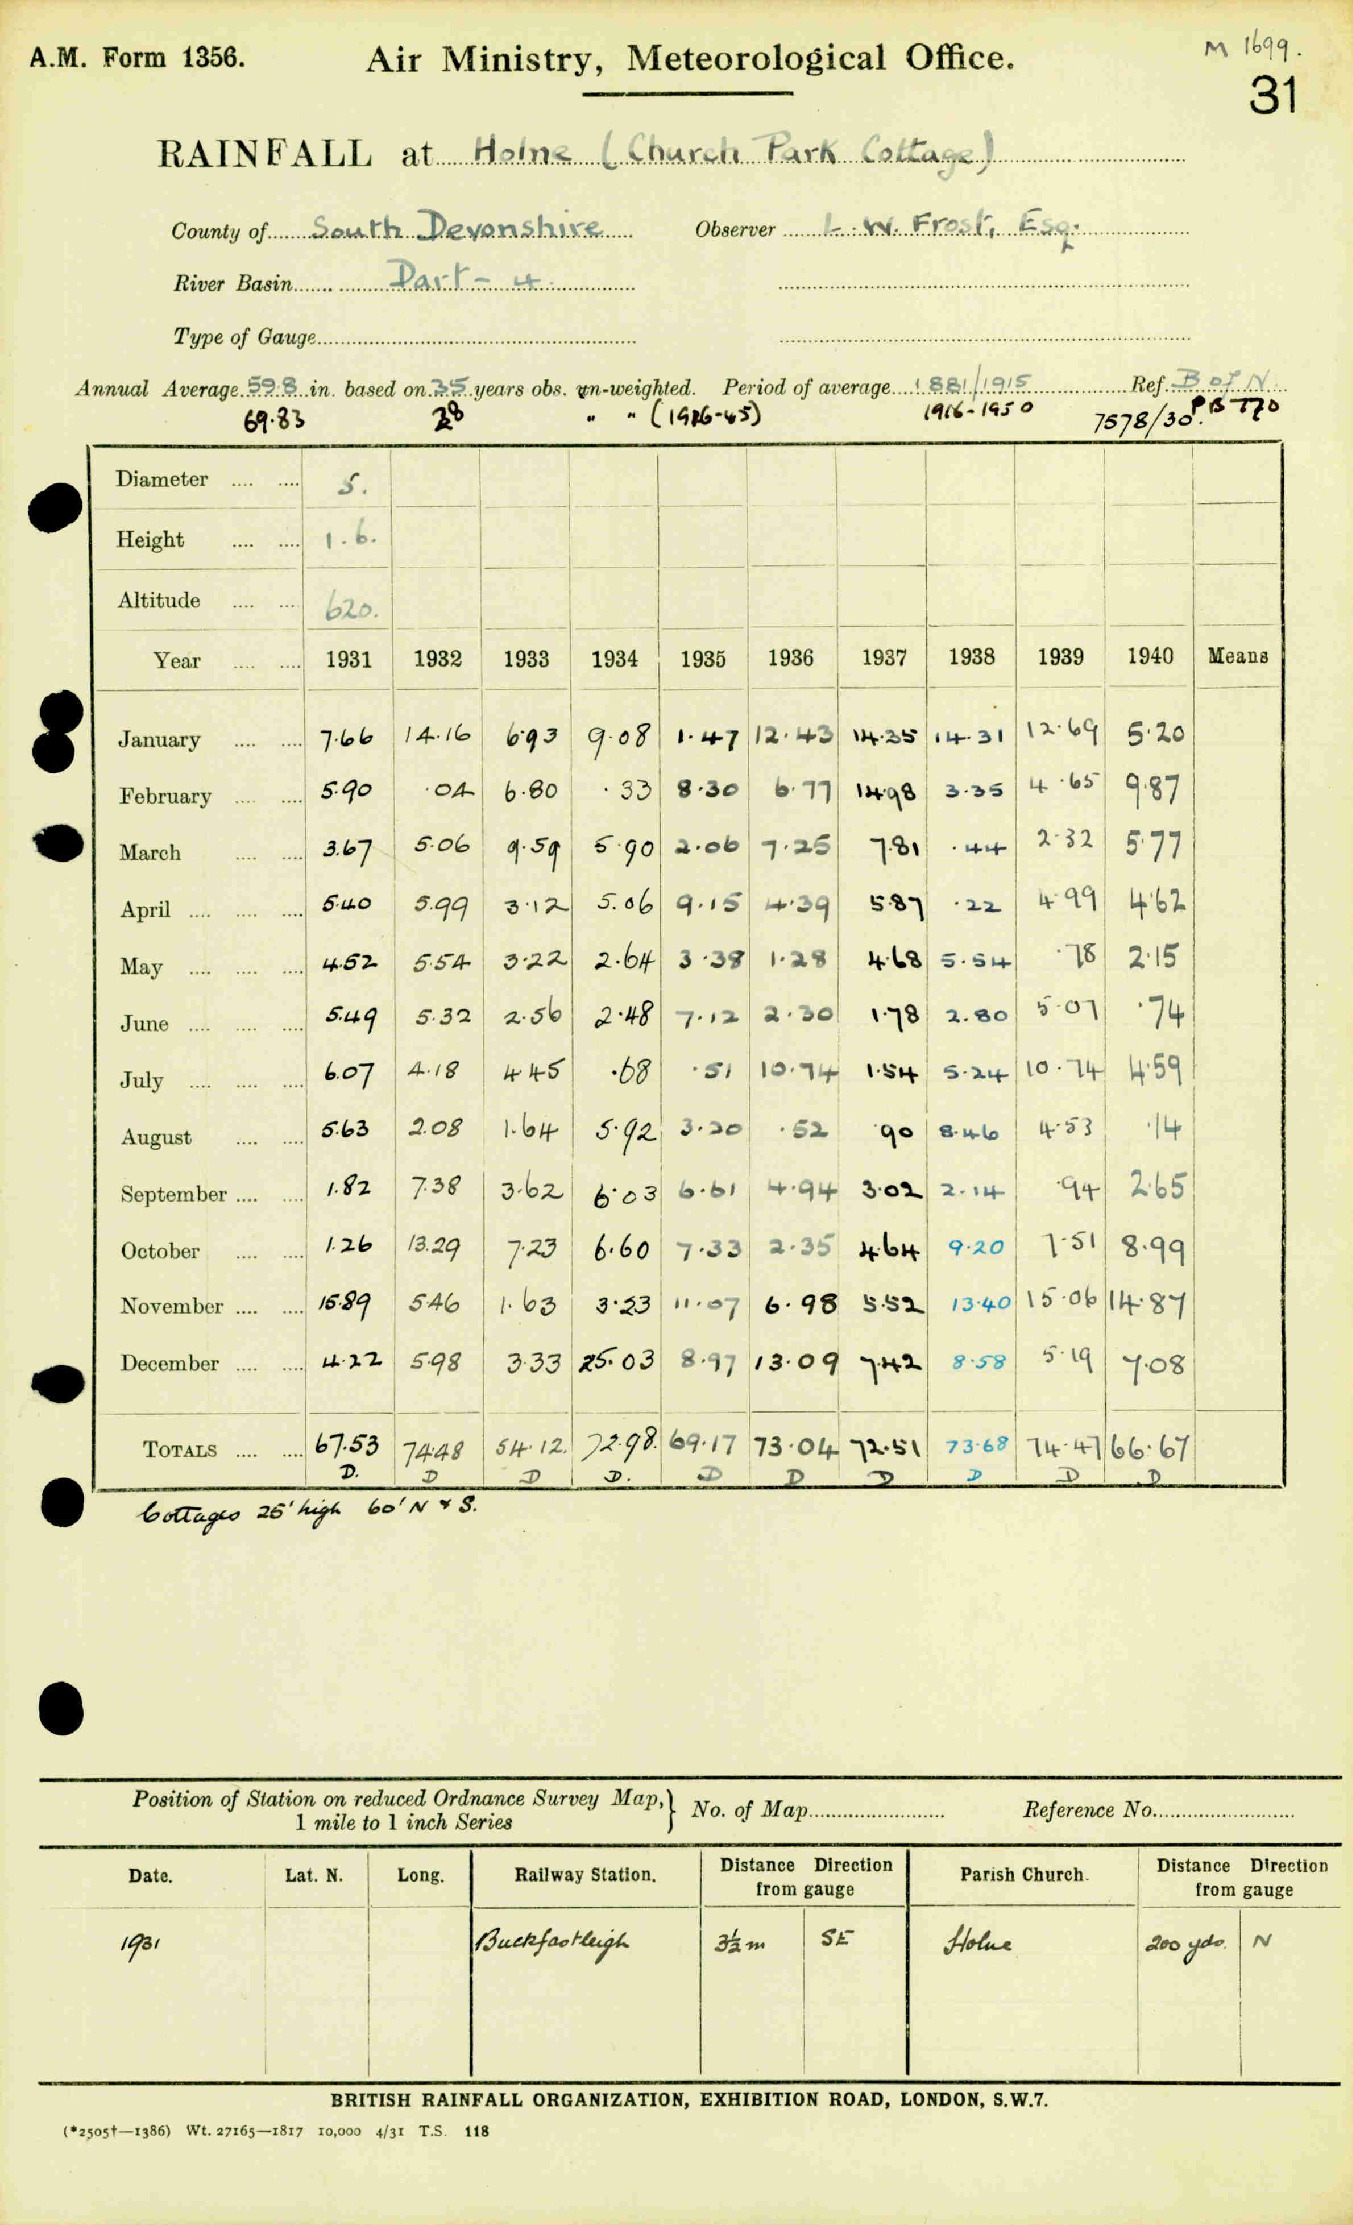 A.M. Form 1356. Air Ministry, Meteorological Office. M 1699.
31
RAINFALL at Holne (Church Park Cottage)
County of South Devonshire Observer L. W. Frost, Esq.
River Basin Dart - 4.
Type of Gauge
Annual Average 59.8 in. based on 35 years obs. un-weighted. Period of average 1881/1915 Ref. B of N
69.83 28 " " (1916-45) 1916-1950 7578/30. PB 770
Diameter 5.
Height 1.6.
Altitude 620.
Year 1931 1932 1933 1934 1935 1936 1937 1938 1939 1940 Means
January 7.66 14.16 6.93 9.08 1.47 12.43 14.35 14.31 12.69 5.20
February 5.90 .04 6.80 .33 8.30 6.77 14.98 3.35 4.65 9.87
March 3.67 5.06 9.59 5.90 2.06 7.25 7.81 .44 2.32 5.77
April 5.40 5.99 3.12 5.06 9.15 4.39 5.87 .22 4.99 4.62
May 4.52 5.54 3.22 2.64 3.38 1.28 4.68 5.54 .78 2.15
June 5.49 5.32 2.56 2.48 7.12 2.30 1.78 2.80 5.07 .74
July 6.07 4.18 4.45 .68 .51 10.74 1.54 5.24 10.74 4.59
August 5.63 2.08 1.64 5.92 3.20 .52 .90 8.46 4.53 .14
September 1.82 7.38 3.62 6.03 6.61 4.94 3.02 2.14 .94 2.65
October 1.26 13.29 7.23 6.60 7.33 2.35 4.64 9.20 7.51 8.99
November 15.89 5.46 1.63 3.23 11.07 6.98 5.52 13.40 15.06 14.87
December 4.22 5.98 3.33 25.03 8.97 13.09 7.42 8.58 5.19 7.08
TOTALS 67.53 74.48 54.12 72.98 69.17 73.04 72.51 73.68 74.47 66.67
D. D D D. D D D D D D
Cottages 25' high 60' N & S.
Position of Station on reduced Ordnance Survey Map, } No. of Map Reference No.
1 mile to 1 inch Series
Date. Lat. N. Long. Railway Station. Distance Direction from gauge Parish Church. Distance Direction from gauge
1931 Buckfastleigh 3½ m SE Holne 200 yds. N
BRITISH RAINFALL ORGANIZATION, EXHIBITION ROAD, LONDON, S.W.7.
(*2505†—1386) Wt. 27165—1817 10,000 4/31 T.S. 118